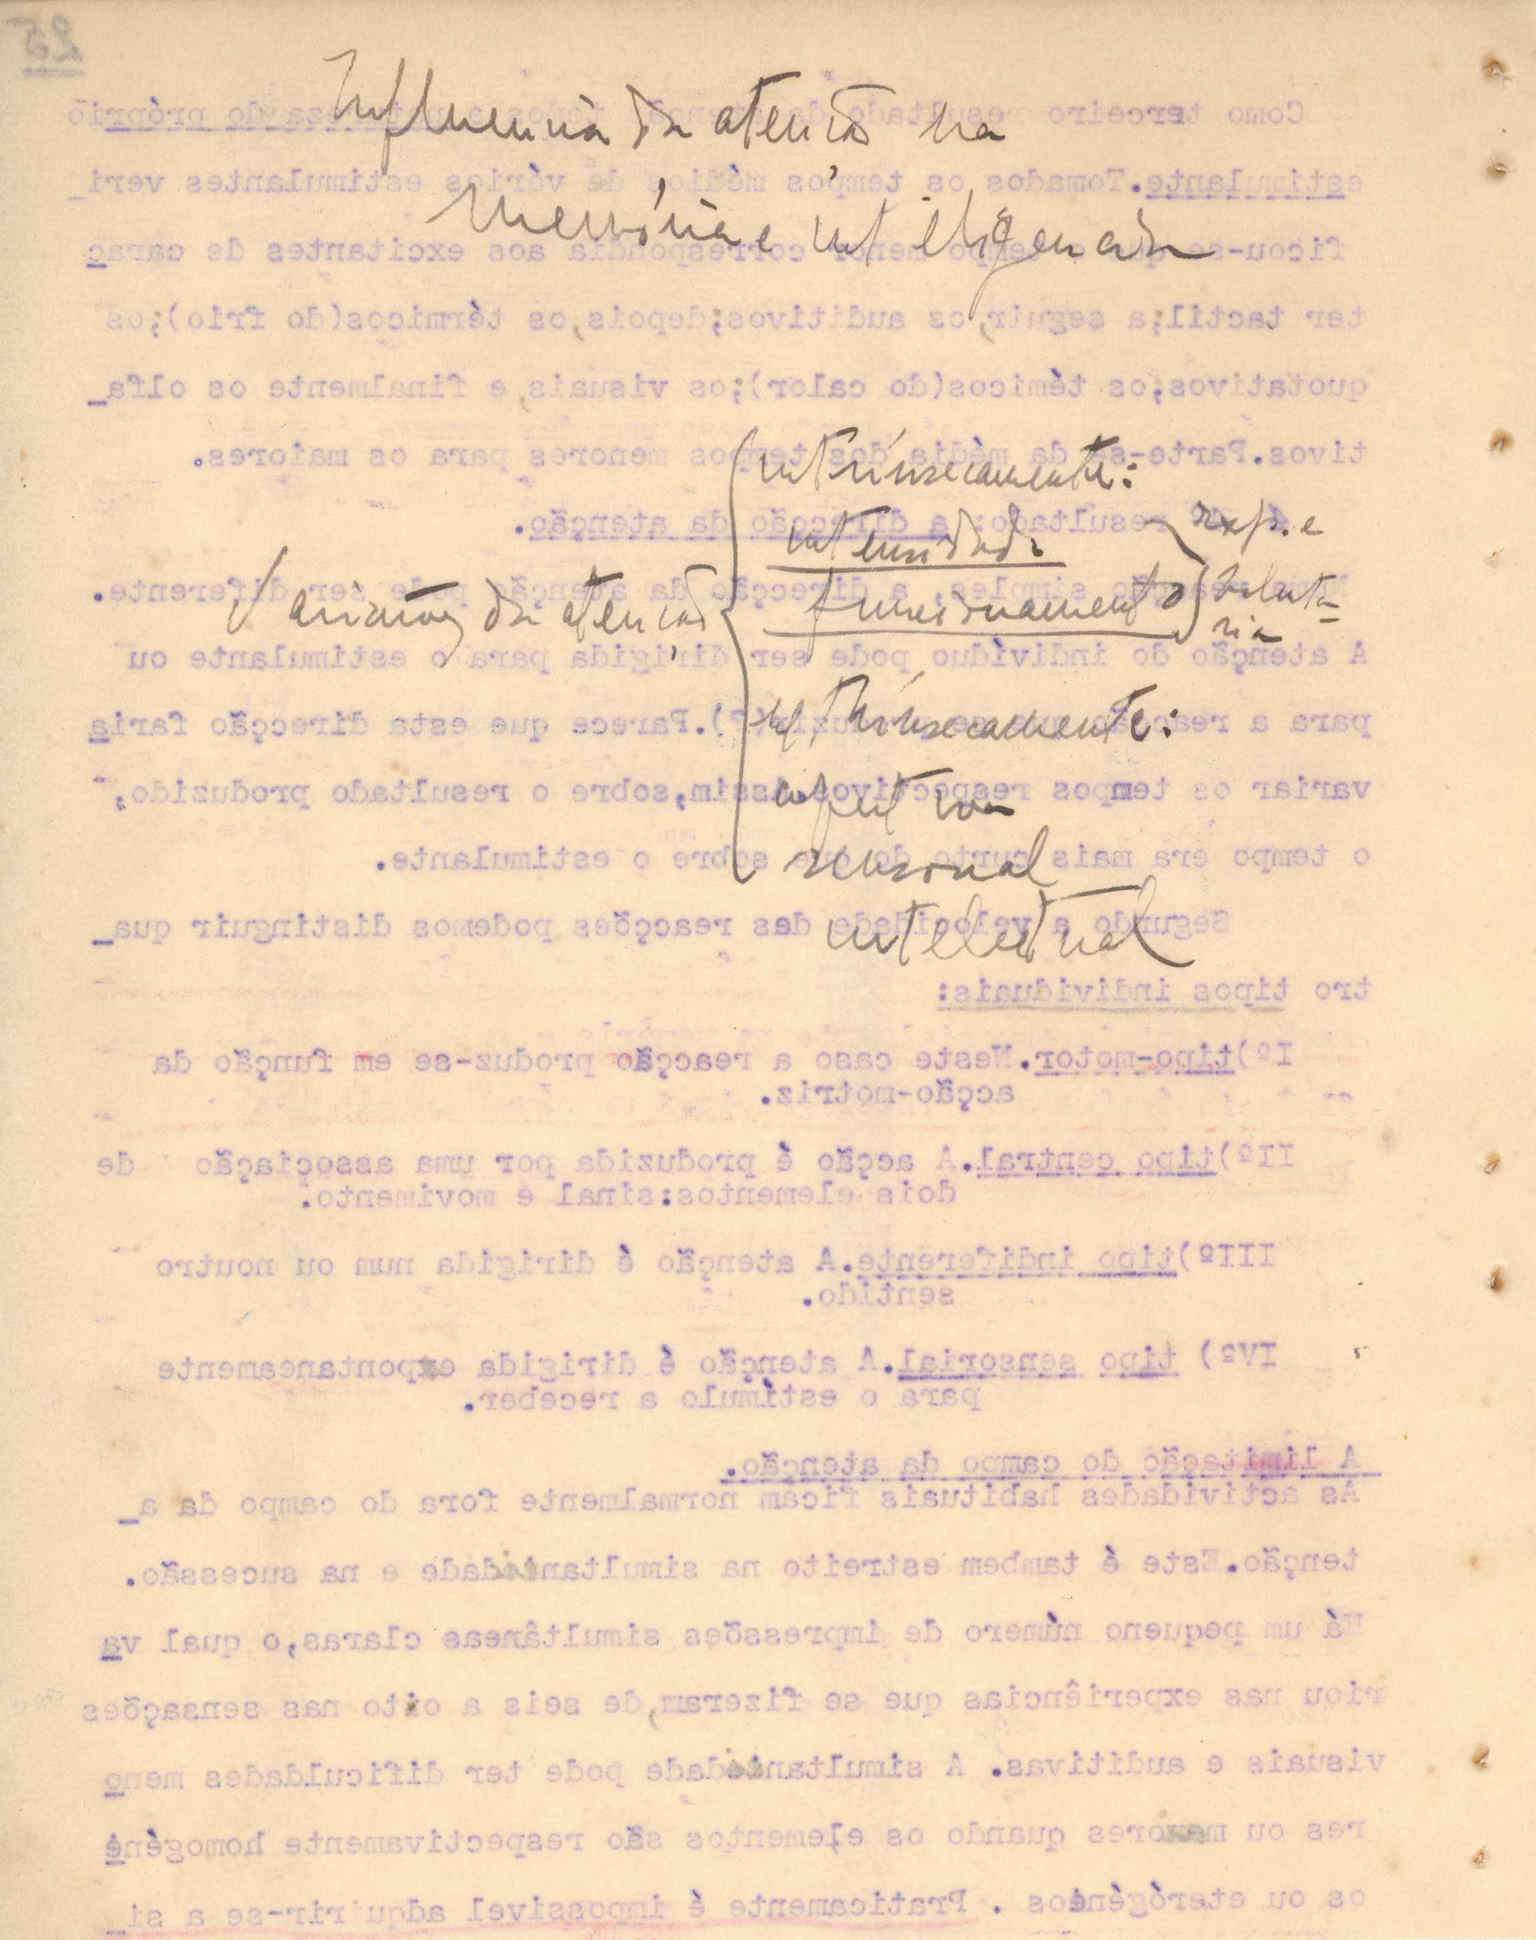 Influencia da atenção na
memória e inteligencia
Variações da atenção
intrínsecamente:
intensidade
funcionamento
esp. e
voluntá-
ria
intrínsecamente:
afectiva
sensorial
intelectual
25
Como terceiro resultado da do próprio
estimulante.Tomados os tempos médios de vários estimulantes veri_
ficou-se que o tempo menor correspondia aos excitantes de carac
ter tactil;a seguir,os auditivos;depois,os térmicos(do frio);os
quotativos;os témicos(do calor);os visuais,e finalmente os olfa_
tivos.Parte-se da média dos tempos menores para os maiores.
resultado: a direcção da atenção.
simples, a direcção da atenção pode ser diferente.
A atenção do indivíduo pode ser dirigida para o estimulante ou
para a reacção Parece que esta direcção faria
variar os tempos respectivos.Assim,sobre o resultado produzido,
o tempo era mais curto do que sobre o estimulante.
Segundo a velocidade das reacções podemos distinguir qua_
tro tipos individuais:
Iº)tipo-motor.Neste caso a reacção produz-se em função da
acção-motriz.
IIº)tipo central.A acção é produzida por uma associação de
dois elementos:sinal e movimento.
IIIº)tipo indiferente.A atenção é dirigida num ou noutro
sentido.
IVº) tipo sensorial.A atenção é dirigida expontaneamente
para o estímulo a receber.
A limitação do campo da atenção.
As actividades habituais ficam normalmente fora do campo da a_
tenção.Este é tambem estreito na simultaneidade e na sucessão.
Há um pequeno número de impressões simultâneas claras,o qual va
riou nas experiências que se fizeram,de seis a oito nas sensações
visuais e auditivas. A simultaneidade pode ter dificuldades meno
res ou menores quando os elementos são respectivamente homogéne
os ou eterógéneos . Praticamente é impossivel adquirir-se a si_